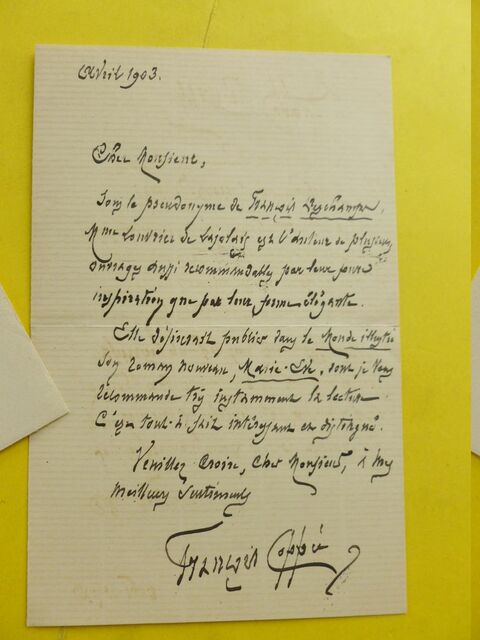 Avril 1903.
Cher Monsieur,
Sous le pseudonyme de François Deschamps,
Mme Louvrier de Lajolais est l'auteur de plusieurs
ouvrages aussi recommandables par leur pure
inspiration que par leur forme élégante.
Elle désirerait publier dans le Monde illustré
son roman nouveau, Marie-Ève, dont je vous
recommande très instamment la lecture.
C'est tout-à-fait intéressant et distingué.
Veuillez croire, cher Monsieur, à mes
meilleurs sentiments
François Coppée